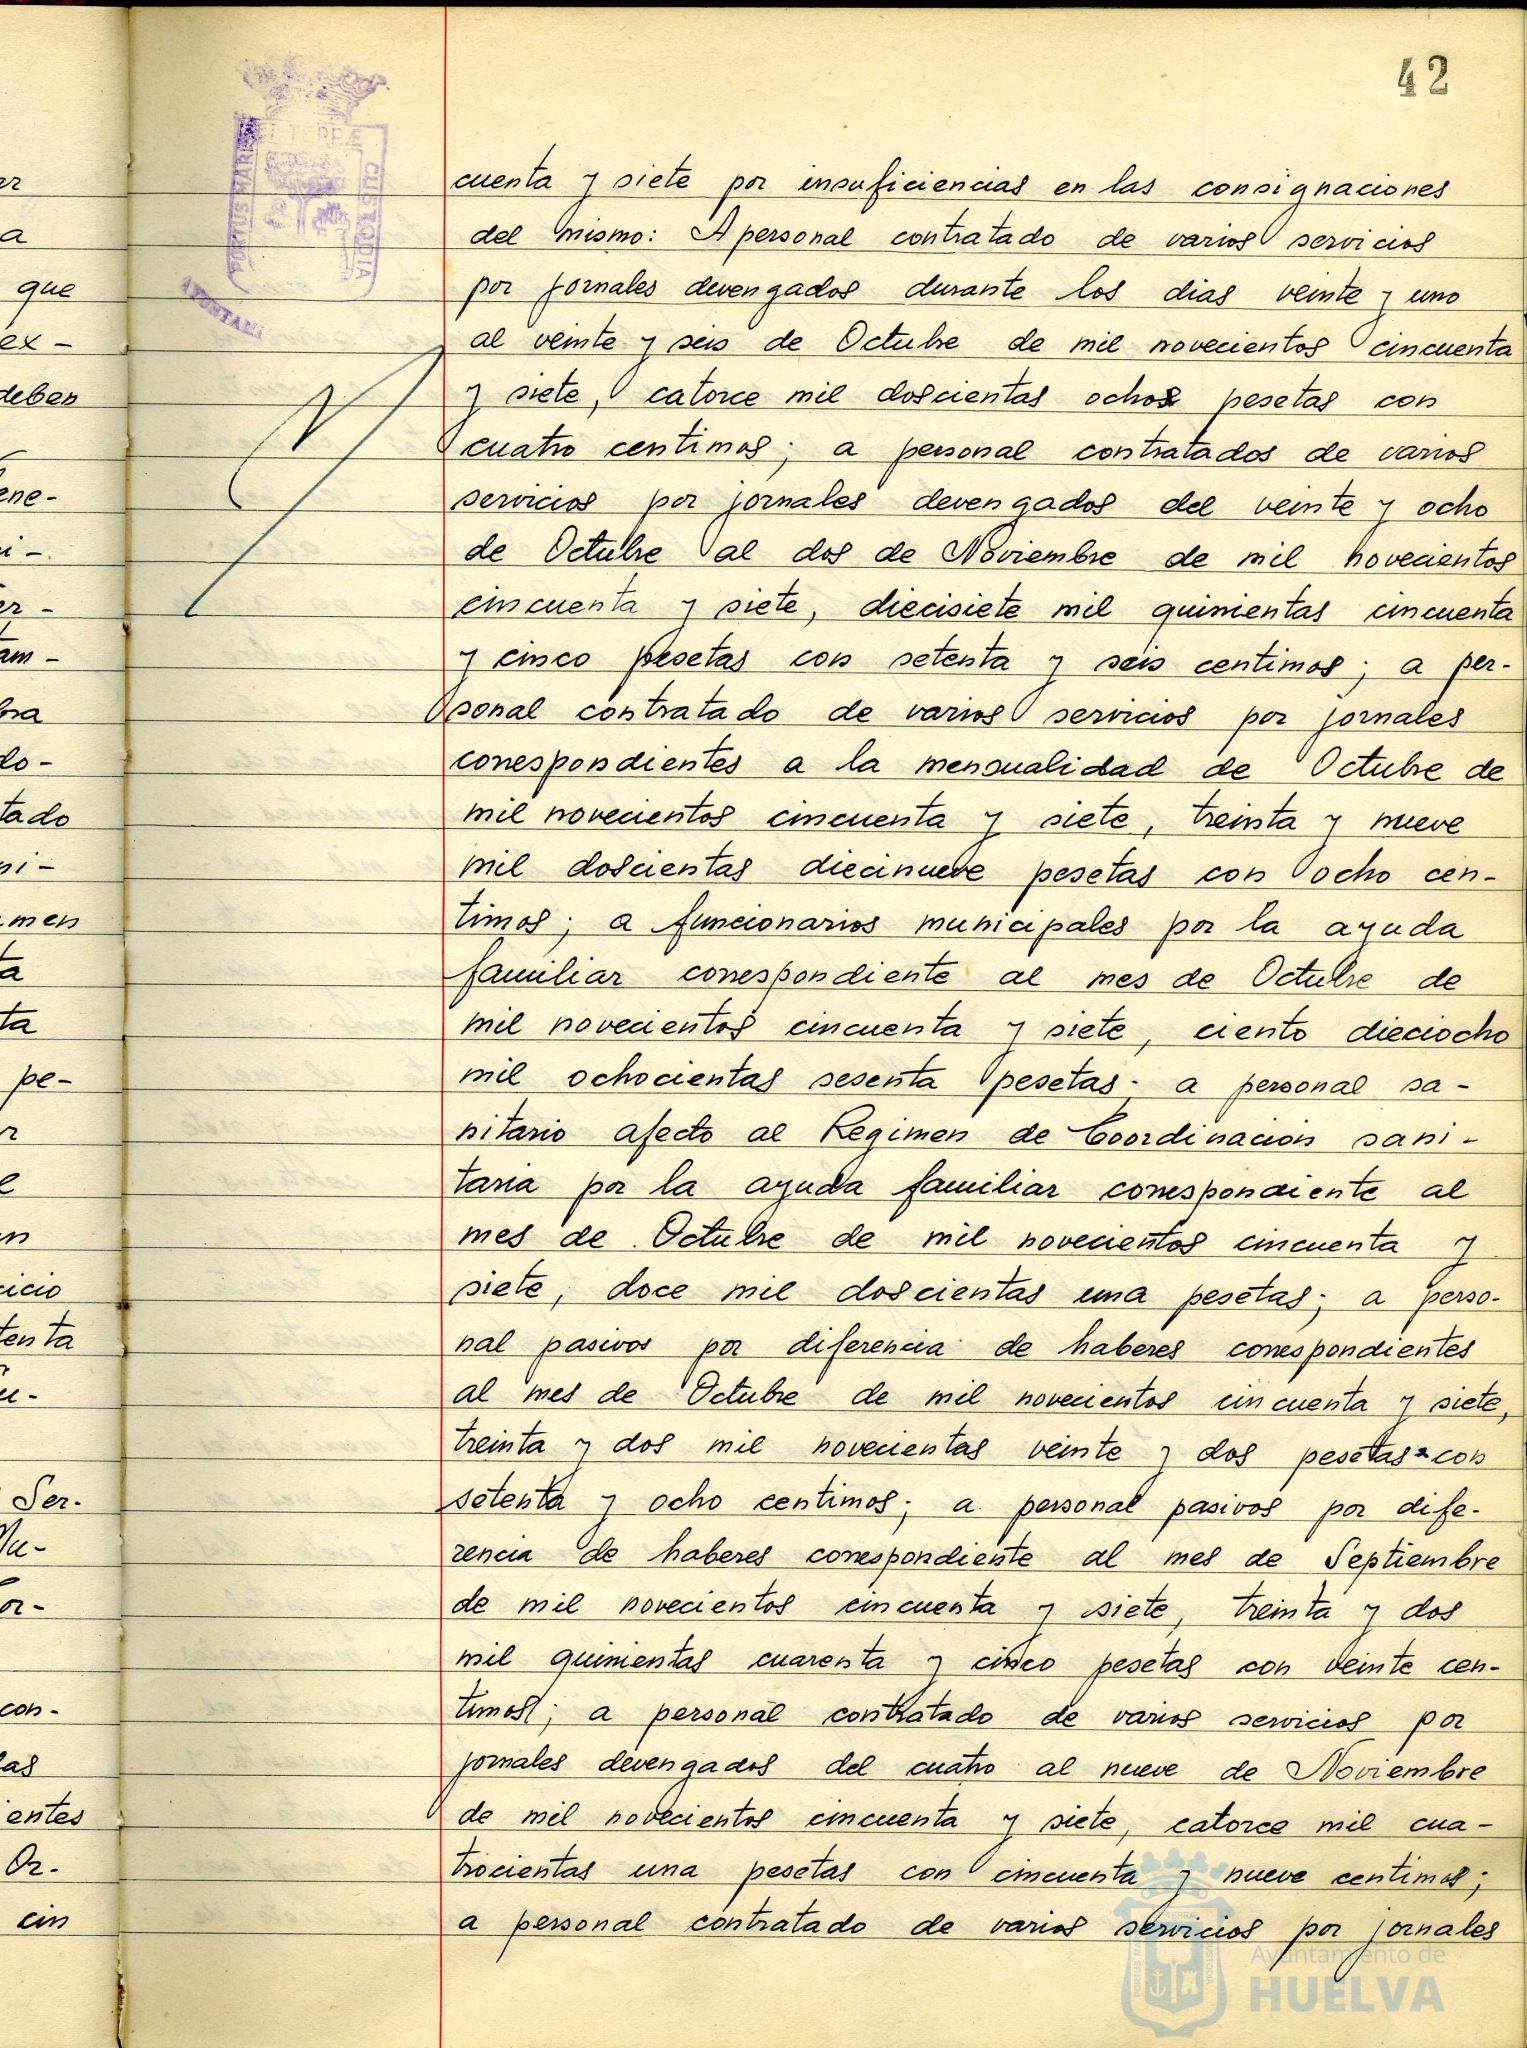 er
a
que
ex-
deben
ene-
ni-
er-
am-
bra
do-
tado
ni-
men
ta
ta
pe-
r
e
n
cicio
tenta
u-
Ser-
Mu-
or-
con-
las
ientes
Or-
cin
42
PORTUS MARIS ET TERRÆ CUSTODIA
cuenta y siete por insuficiencias en las consignaciones
del mismo: A personal contratado de varios servicios
por jornales devengados durante los dias veinte y uno
al veinte y seis de Octubre de mil novecientos cincuenta
y siete, catorce mil doscientas ochos pesetas con
cuatro centimos; a personal contratados de varios
servicios por jornales devengados del veinte y ocho
de Octubre al dos de Noviembre de mil novecientos
cincuenta y siete, diecisiete mil quinientas cincuenta
y cinco pesetas con setenta y seis centimos; a per-
sonal contratado de varios servicios por jornales
correspondientes a la mensualidad de Octubre de
mil novecientos cincuenta y siete, treinta y nueve
mil doscientas diecinueve pesetas con ocho cen-
timos; a funcionarios municipales por la ayuda
familiar correspondiente al mes de Octubre de
mil novecientos cincuenta y siete, ciento dieciocho
mil ochocientas sesenta pesetas; a personal sa-
nitario afecto al Regimen de Coordinacion sani-
taria por la ayuda familiar correspondiente al
mes de Octubre de mil novecientos cincuenta y
siete, doce mil doscientas una pesetas; a perso-
nal pasivos por diferencia de haberes correspondientes
al mes de Octubre de mil novecientos cincuenta y siete,
treinta y dos mil novecientas veinte y dos pesetas con
setenta y ocho centimos; a personal pasivos por dife-
rencia de haberes correspondiente al mes de Septiembre
de mil novecientos cincuenta y siete, treinta y dos
mil quinientas cuarenta y cinco pesetas con veinte cen-
timos; a personal contratado de varios servicios por
jornales devengados del cuatro al nueve de Noviembre
de mil novecientos cincuenta y siete, catorce mil cua-
trocientas una pesetas con cincuenta y nueve centimos;
a personal contratado de varios servicios por jornales
Ayuntamiento de
HUELVA